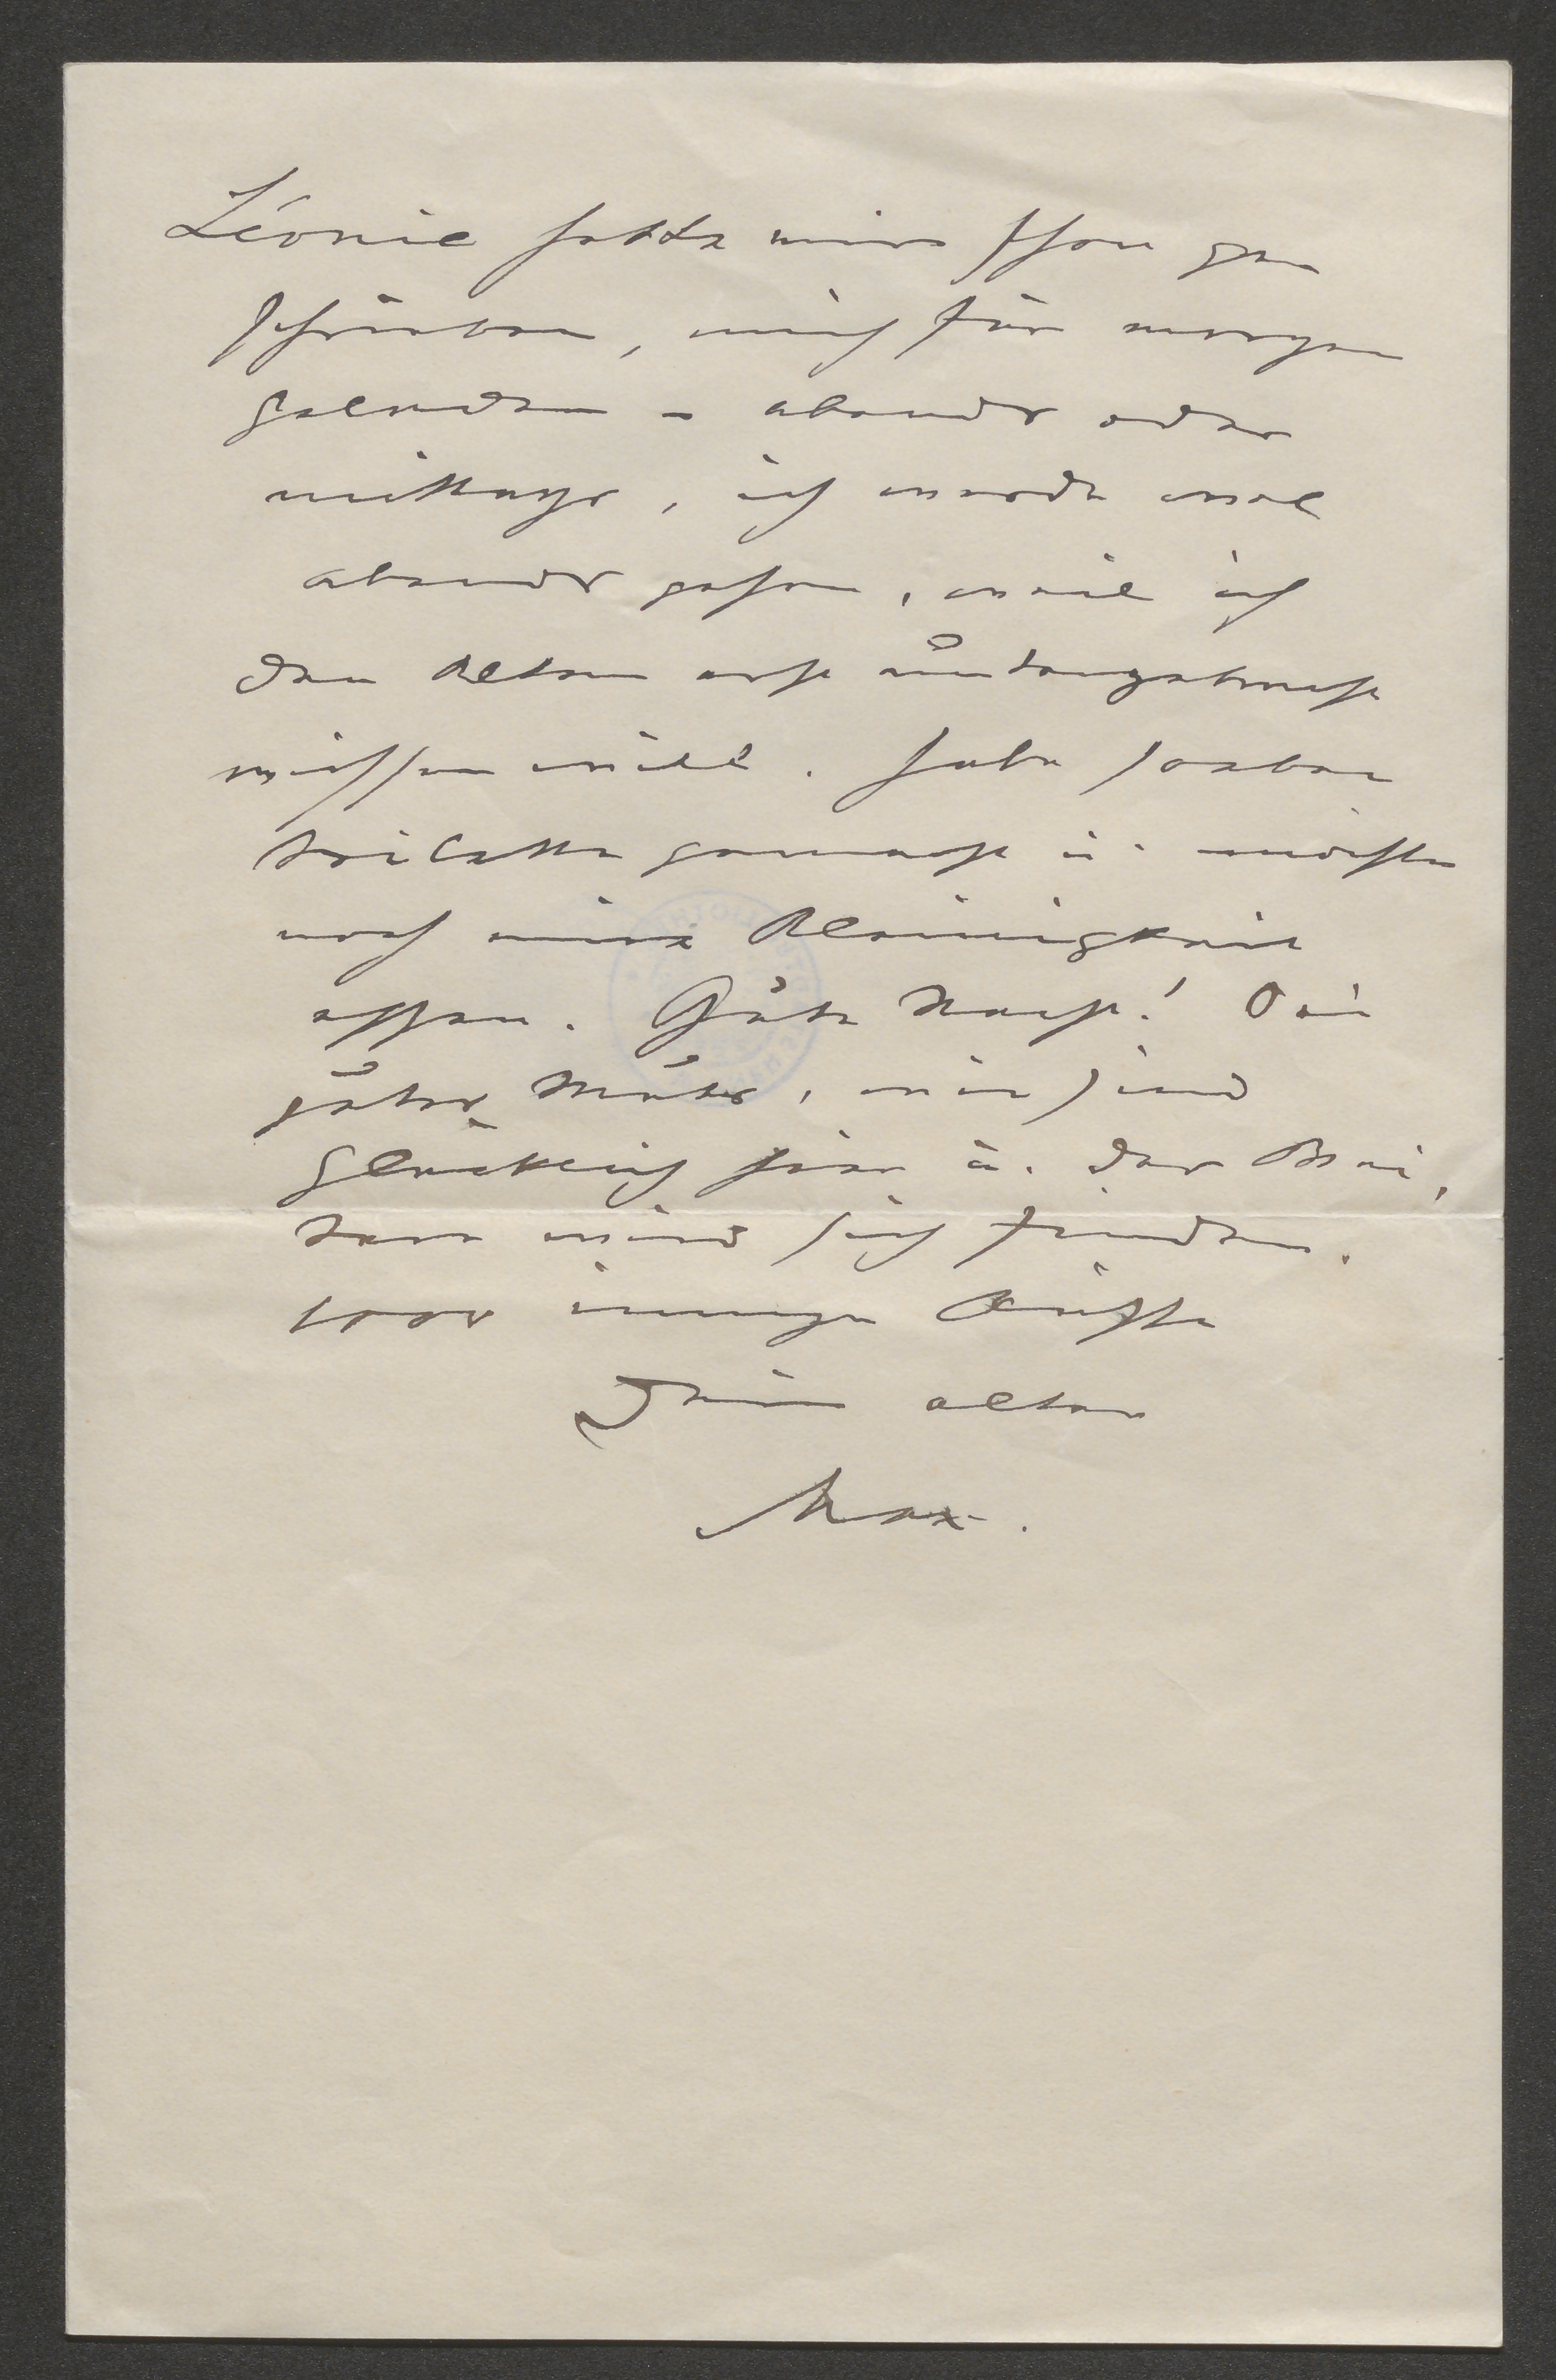 Léonie hatte mir schon ge-
schrieben, mich für morgen
geladen - abends oder
mittags, ich werde wol
abends gehen, weil ich
den Alten erst untergebracht
wissen will. Habe soeben
toilette gemacht u. möchte
noch eine Kleinigkeit
essen. Gute Nacht! Sei
guten Muts, wir sind
glücklich hier u. das Wei-
tere wird sich finden.
1000 innige Küsse
Dein alter
Max.